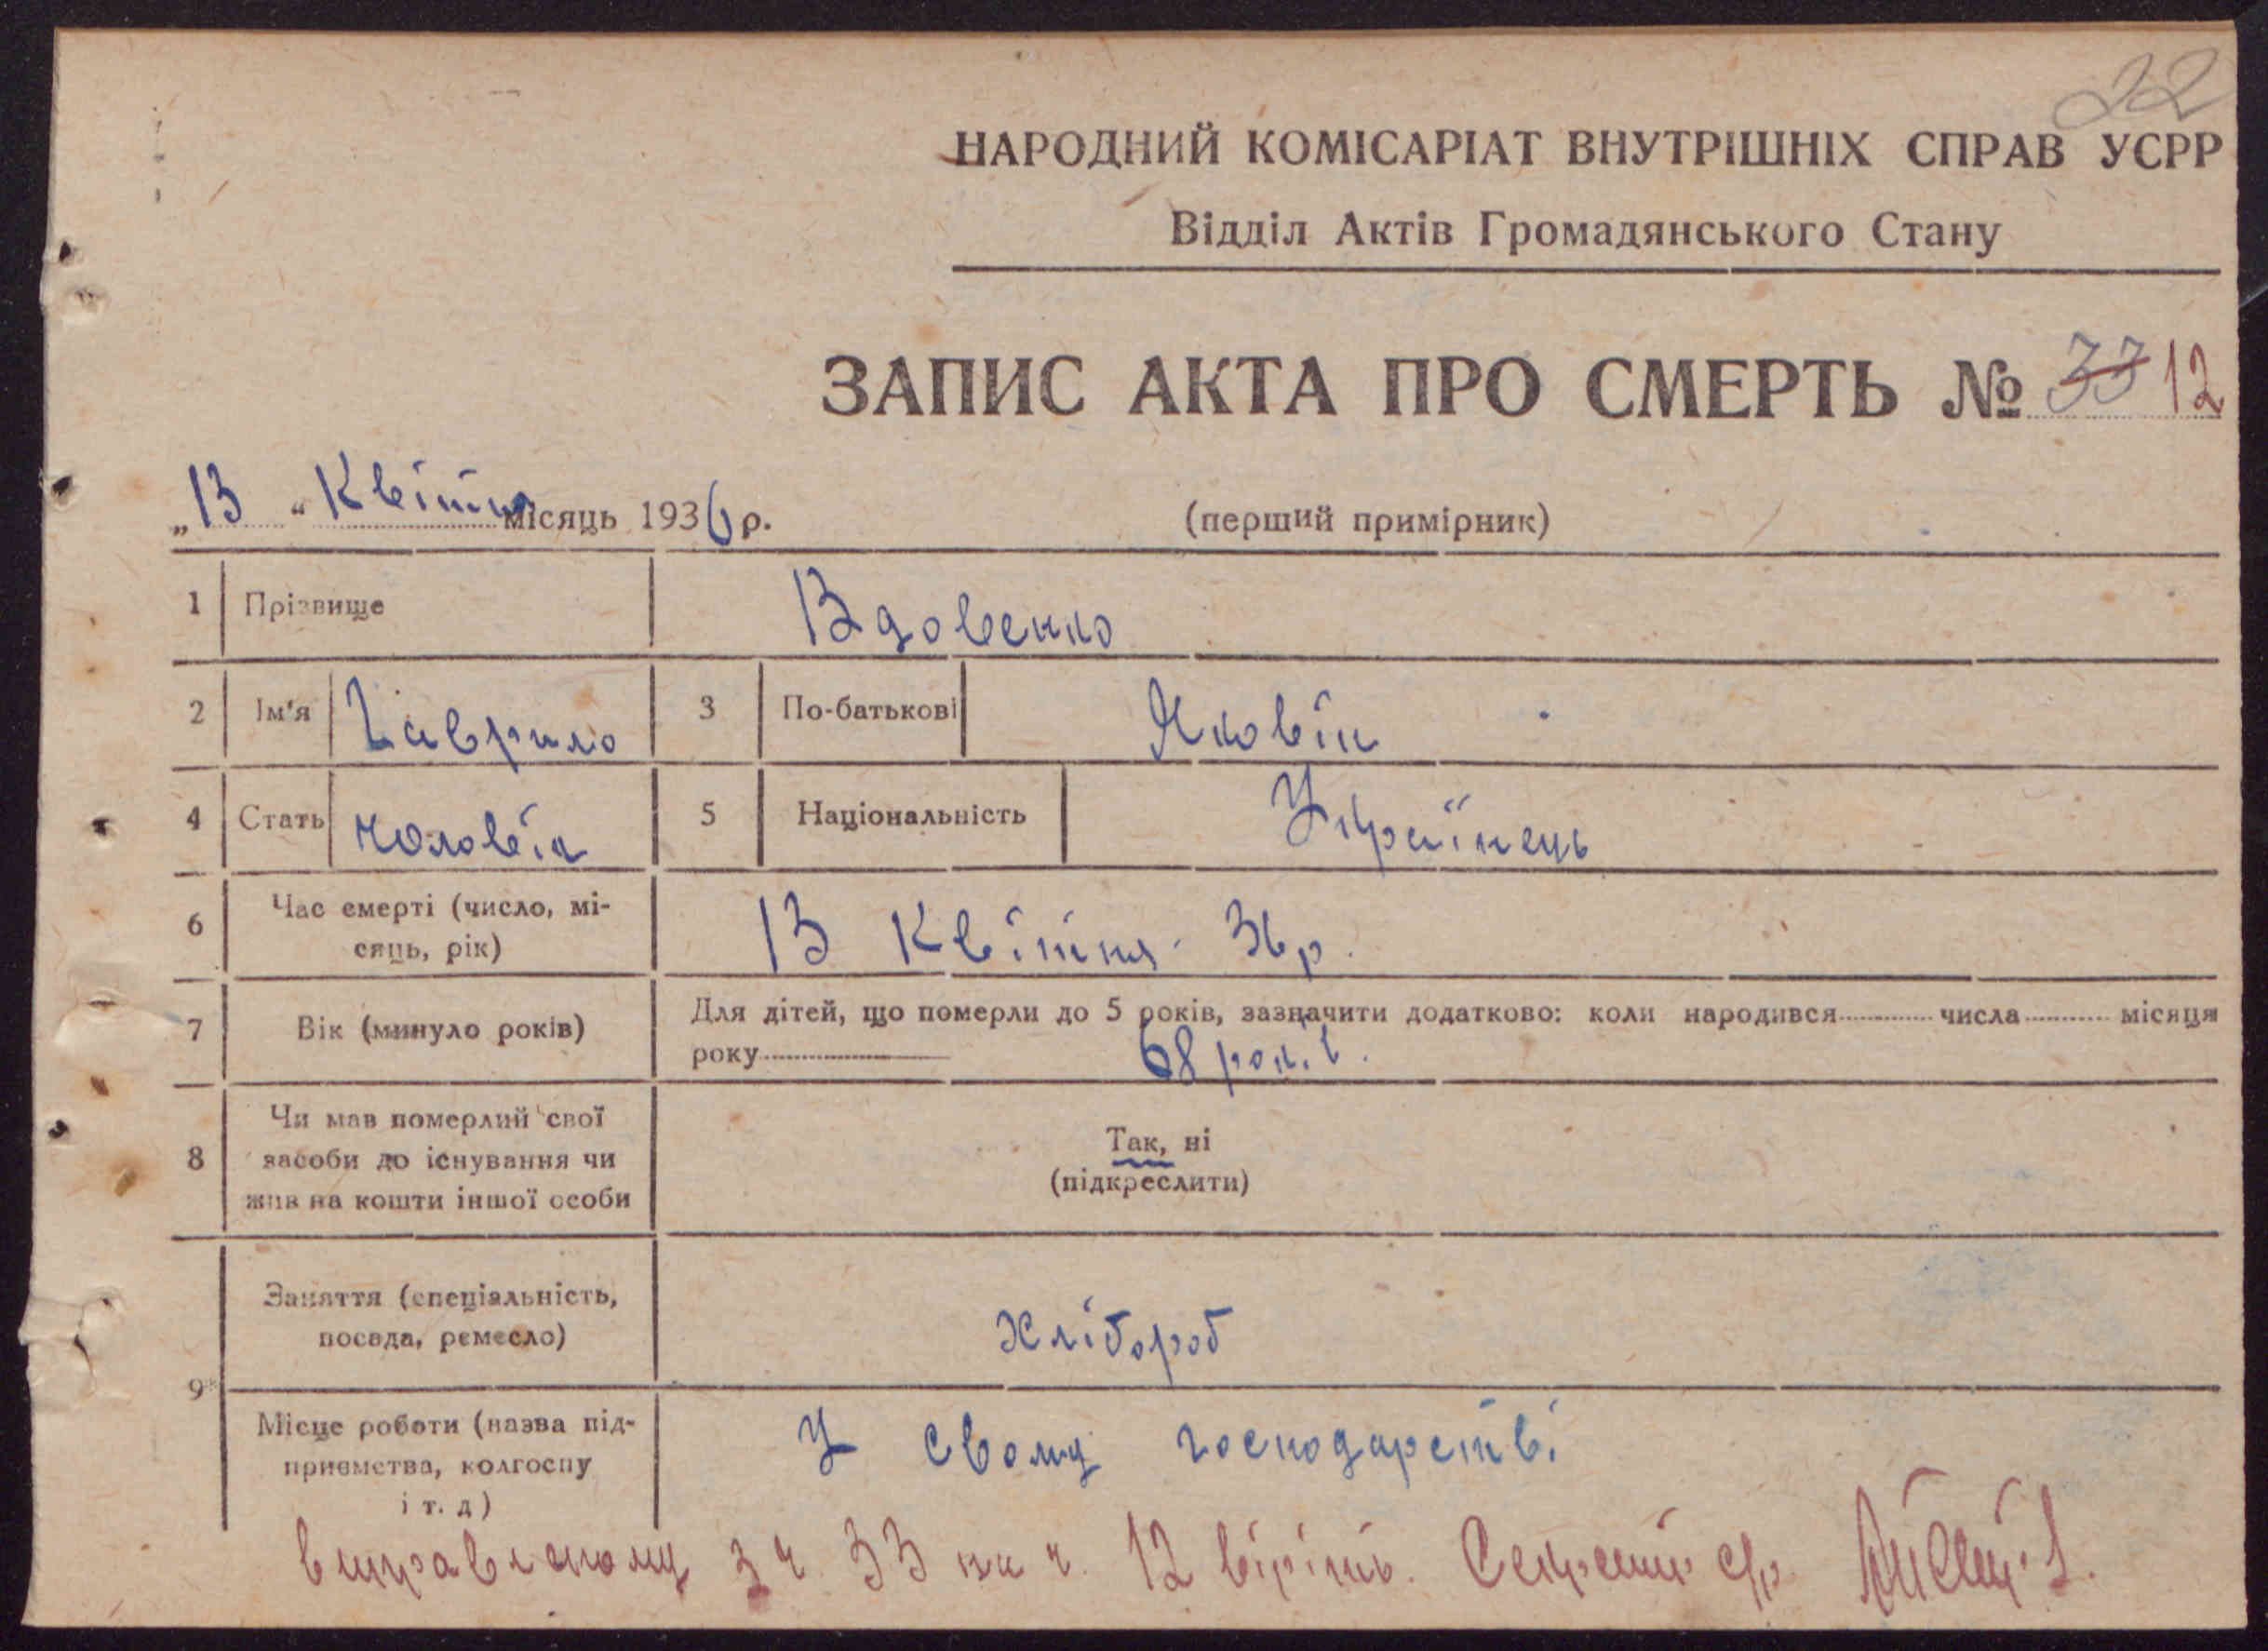 22
НАРОДНИЙ КОМІСАРІАТ ВНУТРІШНІХ СПРАВ УСРР
Відділ Актів Громадянського Стану
ЗАПИС АКТА ПРО СМЕРТЬ № 33 12
„13“ Квітня місяць 1936 р. (перший примірник)
1 Прізвище Вдовенко
2 Ім'я Гаврило 3 По-батькові Яковіч
4 Стать чоловік 5 Національність Українець
6 Час смерті (число, мі-
сяць, рік) 13 Квітня 36 р.
7 Вік (минуло років) Для дітей, що померли до 5 років, зазначити додатково: коли народився числа місяця
року 68 років.
8 Чи мав померлий свої
засоби до існування чи
жив на кошти іншої особи
Так, ні
(підкреслити)
9 Заняття (спеціальність,
посада, ремесло) хлібороб
Місце роботи (назва під-
приємства, колгоспу
і т. д)
У свому господарстві
виправленому з ч. 33 на ч. 12 вірить. Секретар с/р